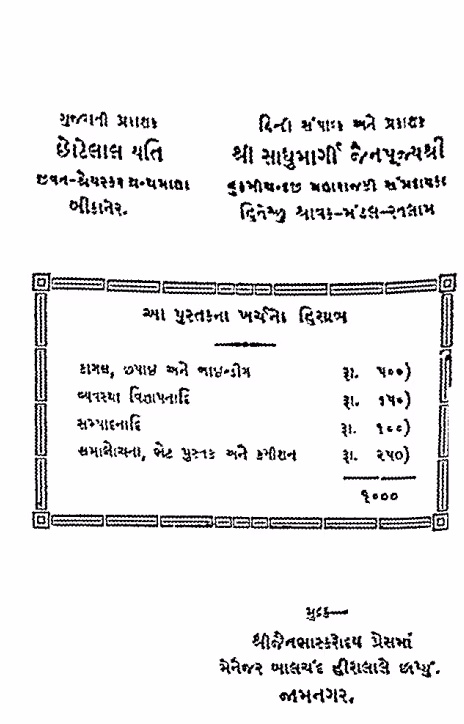 ગુજરાતી પ્રકાશક
છોટેલાલ યતિ
જીવન-શ્રેયસ્કર ગ્રન્થમાલા
બીકાનેર.
હિન્દી સંપાદક અને પ્રકાશક
શ્રી સાધુમાર્ગી જૈનપૂજ્યશ્રી
હુકમીચન્દજી મહારાજકી સંપ્રદાયકા
હિતેચ્છુ શ્રાવક-મંડલ-રતલામ
આ પુસ્તકના ખર્ચનો હિસાબ
કાગલ, છપાઇ અને બાઇન્ડીંગ રૂા. ૫૦૦)
વ્યવસ્થા વિજ્ઞાપનાદિ રૂા. ૧૫૦)
સમ્પાદનાદિ રૂા. ૧૦૦)
સમાલોચના, ભેટ પુસ્તક અને કમીશન રૂા. ૨૫૦)
૧૦૦૦
મુદ્રક—
શ્રીજૈનભાસ્કરોદય પ્રેસમાં
મેનેજર બાલચંદ હીરાલાલે છાપ્યું.
જામનગર.